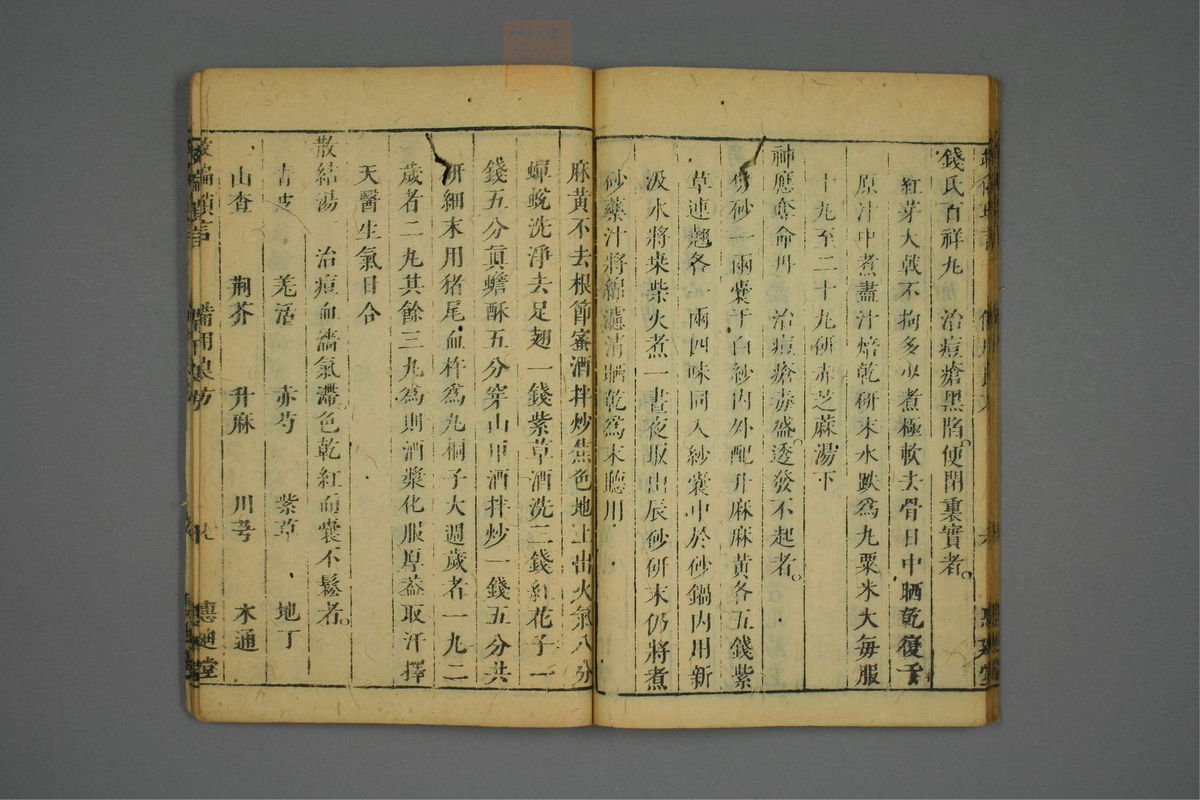 錢氏百祥丸 治痘瘡黑陷便閉裏實者
紅芽大戟不拘多少煮極軟去骨日中晒乾復于
原汁中煮盡汁焙乾研末水跌爲丸粟米大每服
十九至二十九研赤芝蔴湯下
神應奪命丹 治痘瘡毒盛透發不起者
砂一兩囊于白紗內外配升麻麻黃各五錢紫
草連翹各一兩四味同入紗囊中於砂鍋內用新
汲水將桒柴火煮一晝夜取出辰砂研末仍將煮
砂藥汁將綿濾清晒乾爲末聽用
麻黃不去根節蜜酒拌炒焦色地上出火氣八分
蟬蛻洗淨去足翅一錢紫草酒洗三錢紅花子一
錢五分眞蟾酥五分穿山甲酒拌炒一錢五分共
研細末用猪尾血杵爲丸桐子大週歲者一丸二
歲者二丸其餘三丸爲則酒漿化服厚蓋取汗擇
天醫生氣日合
散結湯 治痘血濇氣滯色乾紅而囊不鬆者
青皮 羌活 赤芍 紫草 地丁
山查 荆芥 升麻 川芎 木通
備用良方 惠迪堂